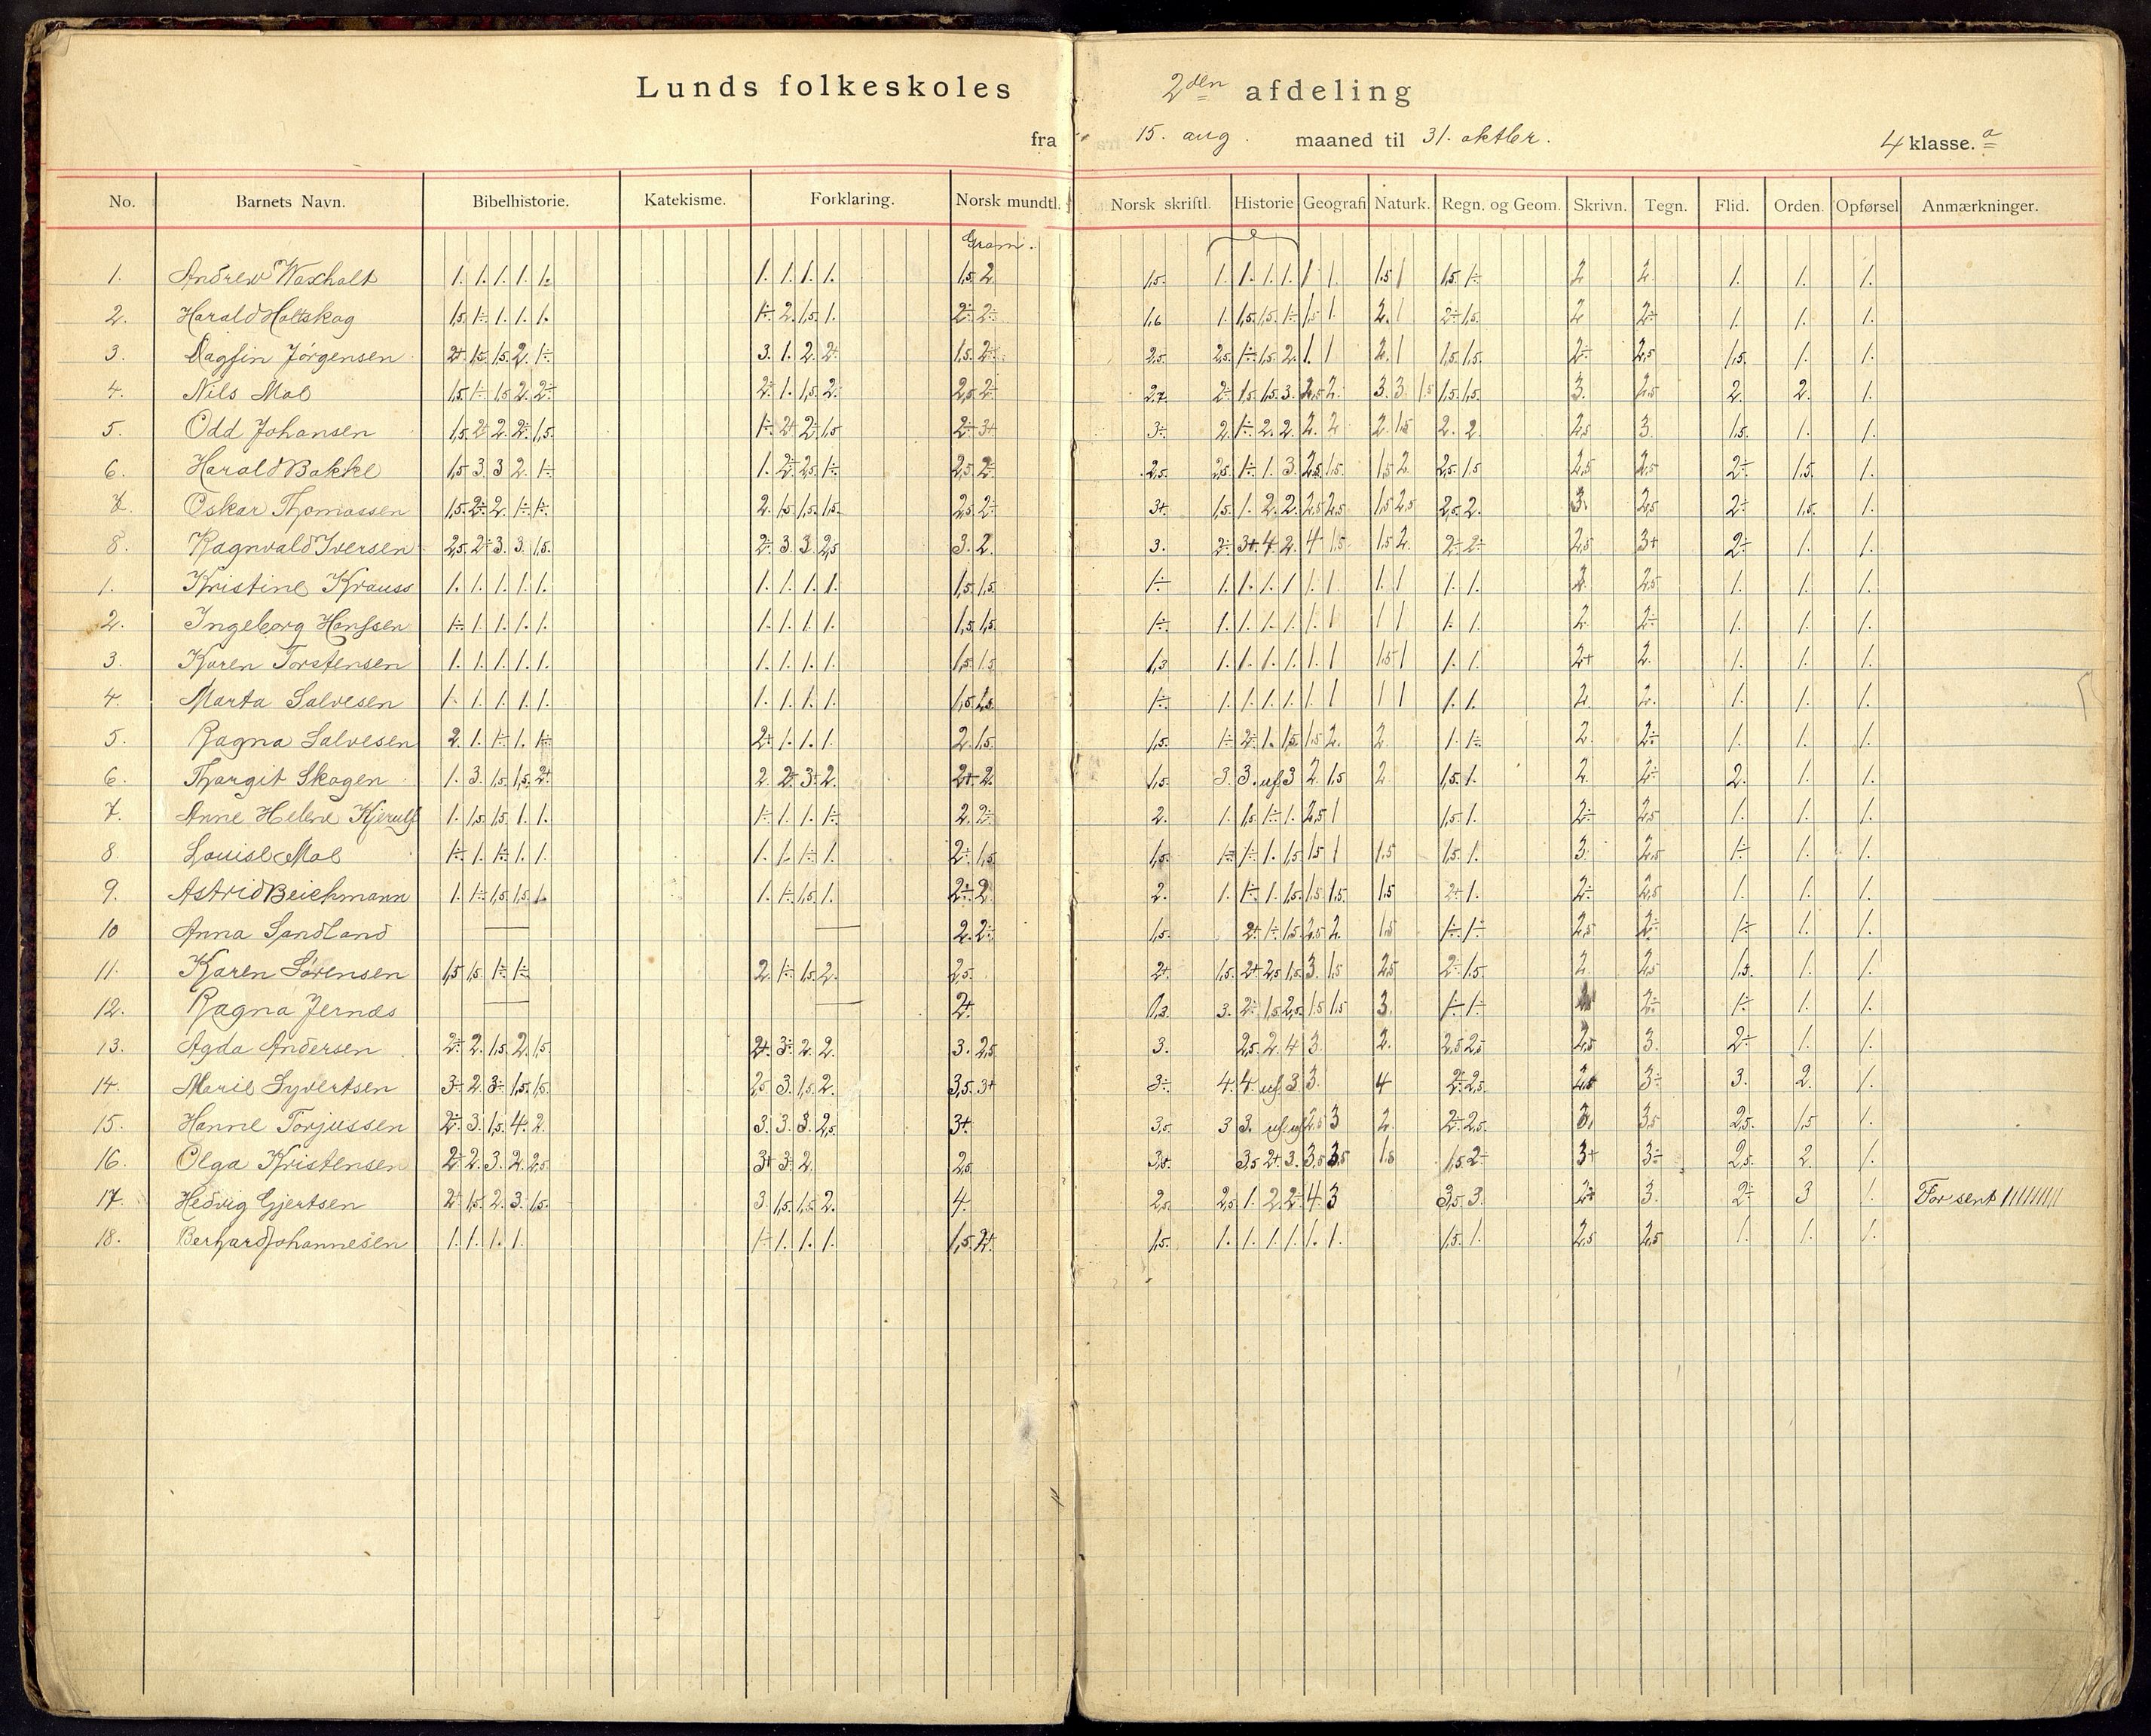 Lunds folkeskoles 2den afdeling
fra 15. aug. maaned til 31. oktbr. 4 klasse. a
No. Barnets Navn. Bibelhistorie. Katekisme. Forklaring. Norsk mundtl. Norsk skriftl. Historie Geografi Naturk. Regn. og Geom. Skrivn. Tegn. Flid. Orden. Opførsel Anmærkninger.
Gram.
1. Andrew Waxholt 1. 1. 1. 1. 1. 1. 1. 1. 1. 1,5 2 1,5. 1. 1. 1. 1. 1 1. 1,5 1 1,5. 1÷ 2 2. 1. 1. 1.
2. Harald Holtskog 1,5. 1÷ 1. 1. 1. 1÷ 2. 1,5. 1. 2÷ 2÷ 1,6 1. 1,5. 1,5. 1÷ 1,5 1. 2. 1 2÷ 1,5. 2 2÷ 1. 1. 1.
3. Dagfin Jørgensen 2+ 1,5. 1,5. 2. 1÷ 3. 1. 2. 2+ 1,5. 2÷ 2,5. 2,5. 1÷ 1,5. 2. 1. 1 2. 1 1,5. 1,5. 2÷ 2,5 1,5. 1. 1.
4. Nils Mol 1,5. 1÷ 1,5 2. 2÷ 2÷ 1. 1,5. 2÷ 2,5 2÷ 2,7. 2÷ 1,5. 1,5. 3. 2,5 2. 3. 3. 1,5 1,5. 1,5. 3. 2,5 2. 2. 1.
5. Odd Johansen 1,5. 2÷ 2. 2÷ 1,5. 1÷ 2+ 2÷ 1,5 2÷ 3+ 3÷ 2. 1÷ 2. 2. 2. 2 2. 1,5 2. 2. 2,5 3. 1,5. 1. 1.
6. Harald Bakke 1,5 3. 3 2. 1÷ 1. 2÷ 2,5. 1÷ 2,5 2÷ 2,5. 2,5 1÷ 1. 3. 2,5. 1,5. 1,5 2. 2,5. 1,5 2,5 2,5 2÷ 1,5. 1.
7. Oskar Thomassen 1,5. 2÷ 2. 1÷ 1÷ 2. 1,5 1,5. 1,5. 2,5. 2÷ 3+. 1,5. 1. 2. 2. 2,5 2,5. 1,5 2,5 2,5. 2. 3. 2,5 2÷ 1,5. 1.
8. Ragnvald Iversen 2,5. 2÷ 3. 3. 1,5. 2÷ 3. 3. 2,5 3. 2. 3. 2÷ 3+. 4. 2. 4 1,5. 1,5 2. 2÷ 2÷ 2,5 3+ 2÷ 1. 1.
1. Kristine Krauss 1. 1. 1. 1. 1. 1. 1. 1. 1. 1,5. 1,5. 1÷ 1. 1. 1. 1 1. 1. 1. 1 1. 1. 2. 2,5 1. 1. 1.
2. Ingeborg Hanssen 1÷ 1. 1. 1. 1. 1. 1. 1. 1. 1,5. 1,5. 1÷ 1. 1. 1. 1. 1. 1 1 1 1. 1. 2. 2÷ 1. 1. 1.
3. Karen Torstensen 1. 1. 1. 1. 1. 1. 1. 1. 1. 1,5. 1,5 1,3 1. 1. 1. 1. 1. 1 1,5 1 1. 1. 2+ 2. 1. 1. 1.
4. Marta Salvesen 1. 1. 1. 1. 1. 1. 1. 1. 1. 1,5. 1,5. 1÷ 1. 1. 1. 1. 1. 1 1 1 1. 1. 2. 2. 1. 1. 1.
5. Ragna Salvesen 2. 1. 1÷ 1. 1÷ 2+ 1. 1. 1. 2. 1,5. 1,5. 1÷ 2÷ 1. 1,5. 1,5 2. 2. 1. 1÷ 2. 2÷ 1. 1. 1.
6. Thargit Skogen 1. 3. 1,5 1,5. 2+ 2. 2+ 3÷ 2. 2+ 2. 1,5. 3. 3. uf 3 2. 1,5 2. 1,5. 1. 2. 2÷ 2. 1. 1.
7. Anne Helene Kjerulf 1. 1,5. 1,5. 1. 1. 1÷ 1. 1. 1÷ 2. 2÷ 2. 1. 1,5. 1÷ 1. 2,5 1 1,5. 1. 2÷ 2,5 1. 1. 1.
8. Louise Mol 1÷ 1. 1÷ 1. 1. 1. 1. 1÷ 1. 2÷ 1,5 1,5. 1÷ 1÷ 1. 1,5 1,5 1 1,5 1,5. 1. 3. 2,5 1÷ 1. 1.
9. Astrid Beichmann 1. 1÷ 1,5. 1,5. 1. 1. 1÷ 1,5. 1. 2÷ 2. 2. 1. 1÷ 1. 1,5. 1,5 1,5. 1,5 2+ 1. 2÷ 2,5 1. 1. 1.
10 Anna Sandland — — 2. 2÷ 1,5. 2+ 1÷ 1,5. 2,5 2. 1,5 1÷ 1÷ 2,5 2÷ 1÷ 1. 1.
11. Karen Sørensen 1,5 1,5. 1÷ 1÷ 2. 1÷ 1,5. 2. 2,5. 2+. 1,5. 2+ 2,5 1,5. 3. 1,5 2,5 2÷ 1,5 2. 2,5 1,5. 1. 1.
12. Ragna Jernæs — — 2+ 1,3. 3. 2÷ 1,5 2,5. 1,5 1,5 3. 1÷ 1÷ 2÷ 1÷ 1. 1.
13. Agda Andersen 2÷ 2. 1,5. 2. 1,5. 2+. 3÷ 2. 2. 3. 2,5 3. 2,5. 2. 4 3. 2. 2,5 2,5 2,5 3. 2÷ 1. 1.
14. Marie Syvertsen 3÷ 2. 3÷ 1,5. 1,5. 2,5 3. 1,5. 2. 3,5. 3+ 3÷ 4. 4. uf. 3 3. 4 2÷ 2,5. 2,5 3÷ 3. 2. 1.
15. Hanne Torjussen 2÷ 3. 1,5. 4. 2. 3. 3. 3. 2,5. 3+. 3,5. 3 3. uf. uf 2,5 3 2. 2÷ 2,5. 3. 3,5 2,5. 1,5 1.
16. Olga Kristensen 2÷ 2. 3. 2. 2,5 3+ 3÷ 2. 2,5. 3+. 3,5 2+ 3. 3,5 3,5 1,5 1,5 2÷ 3+ 3÷ 2,5. 2. 1.
17. Hedvig Gjertsen 2+ 1,5. 2. 3. 1,5. 3. 1,5. 1,5. 2. 4. 2,5. 2,5 1. 2. 2÷ 4. 3 3,5 3. 2+ 3. 2÷ 3 1. For sent ||||||||||
18. Berhard Johannesen 1. 1. 1. 1. 1÷ 1. 1. 1. 1,5. 2+ 1,5. 1. 1. 1. 1. 1. 1. 1,5. 1. 2,5 2,5 1. 1. 1.